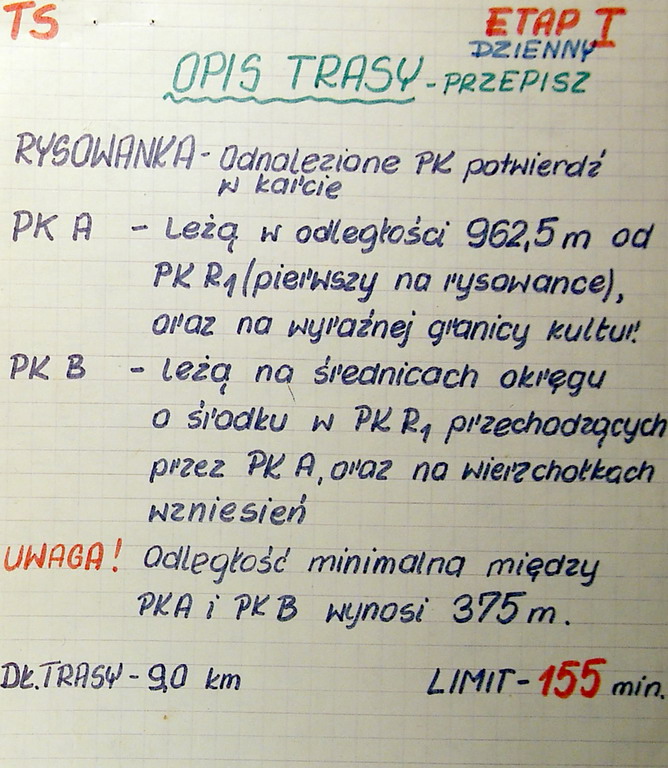 TS
ETAP I
DZIENNY
OPIS TRASY - PRZEPISZ
RYSOWANKA - Odnalezione PK potwierdź
w karcie
PK A - Leżą w odległości 962,5 m od
PK R1 (pierwszy na rysowance),
oraz na wyraźnej granicy kultur.
PK B - leżą na średnicach okręgu
o środku w PK R1 przechodzących
przez PK A, oraz na wierzchołkach
wzniesień
UWAGA! Odległość minimalna między
PKA i PK B wynosi 375 m.
DŁ. TRASY - 9,0 km LIMIT - 155 min.